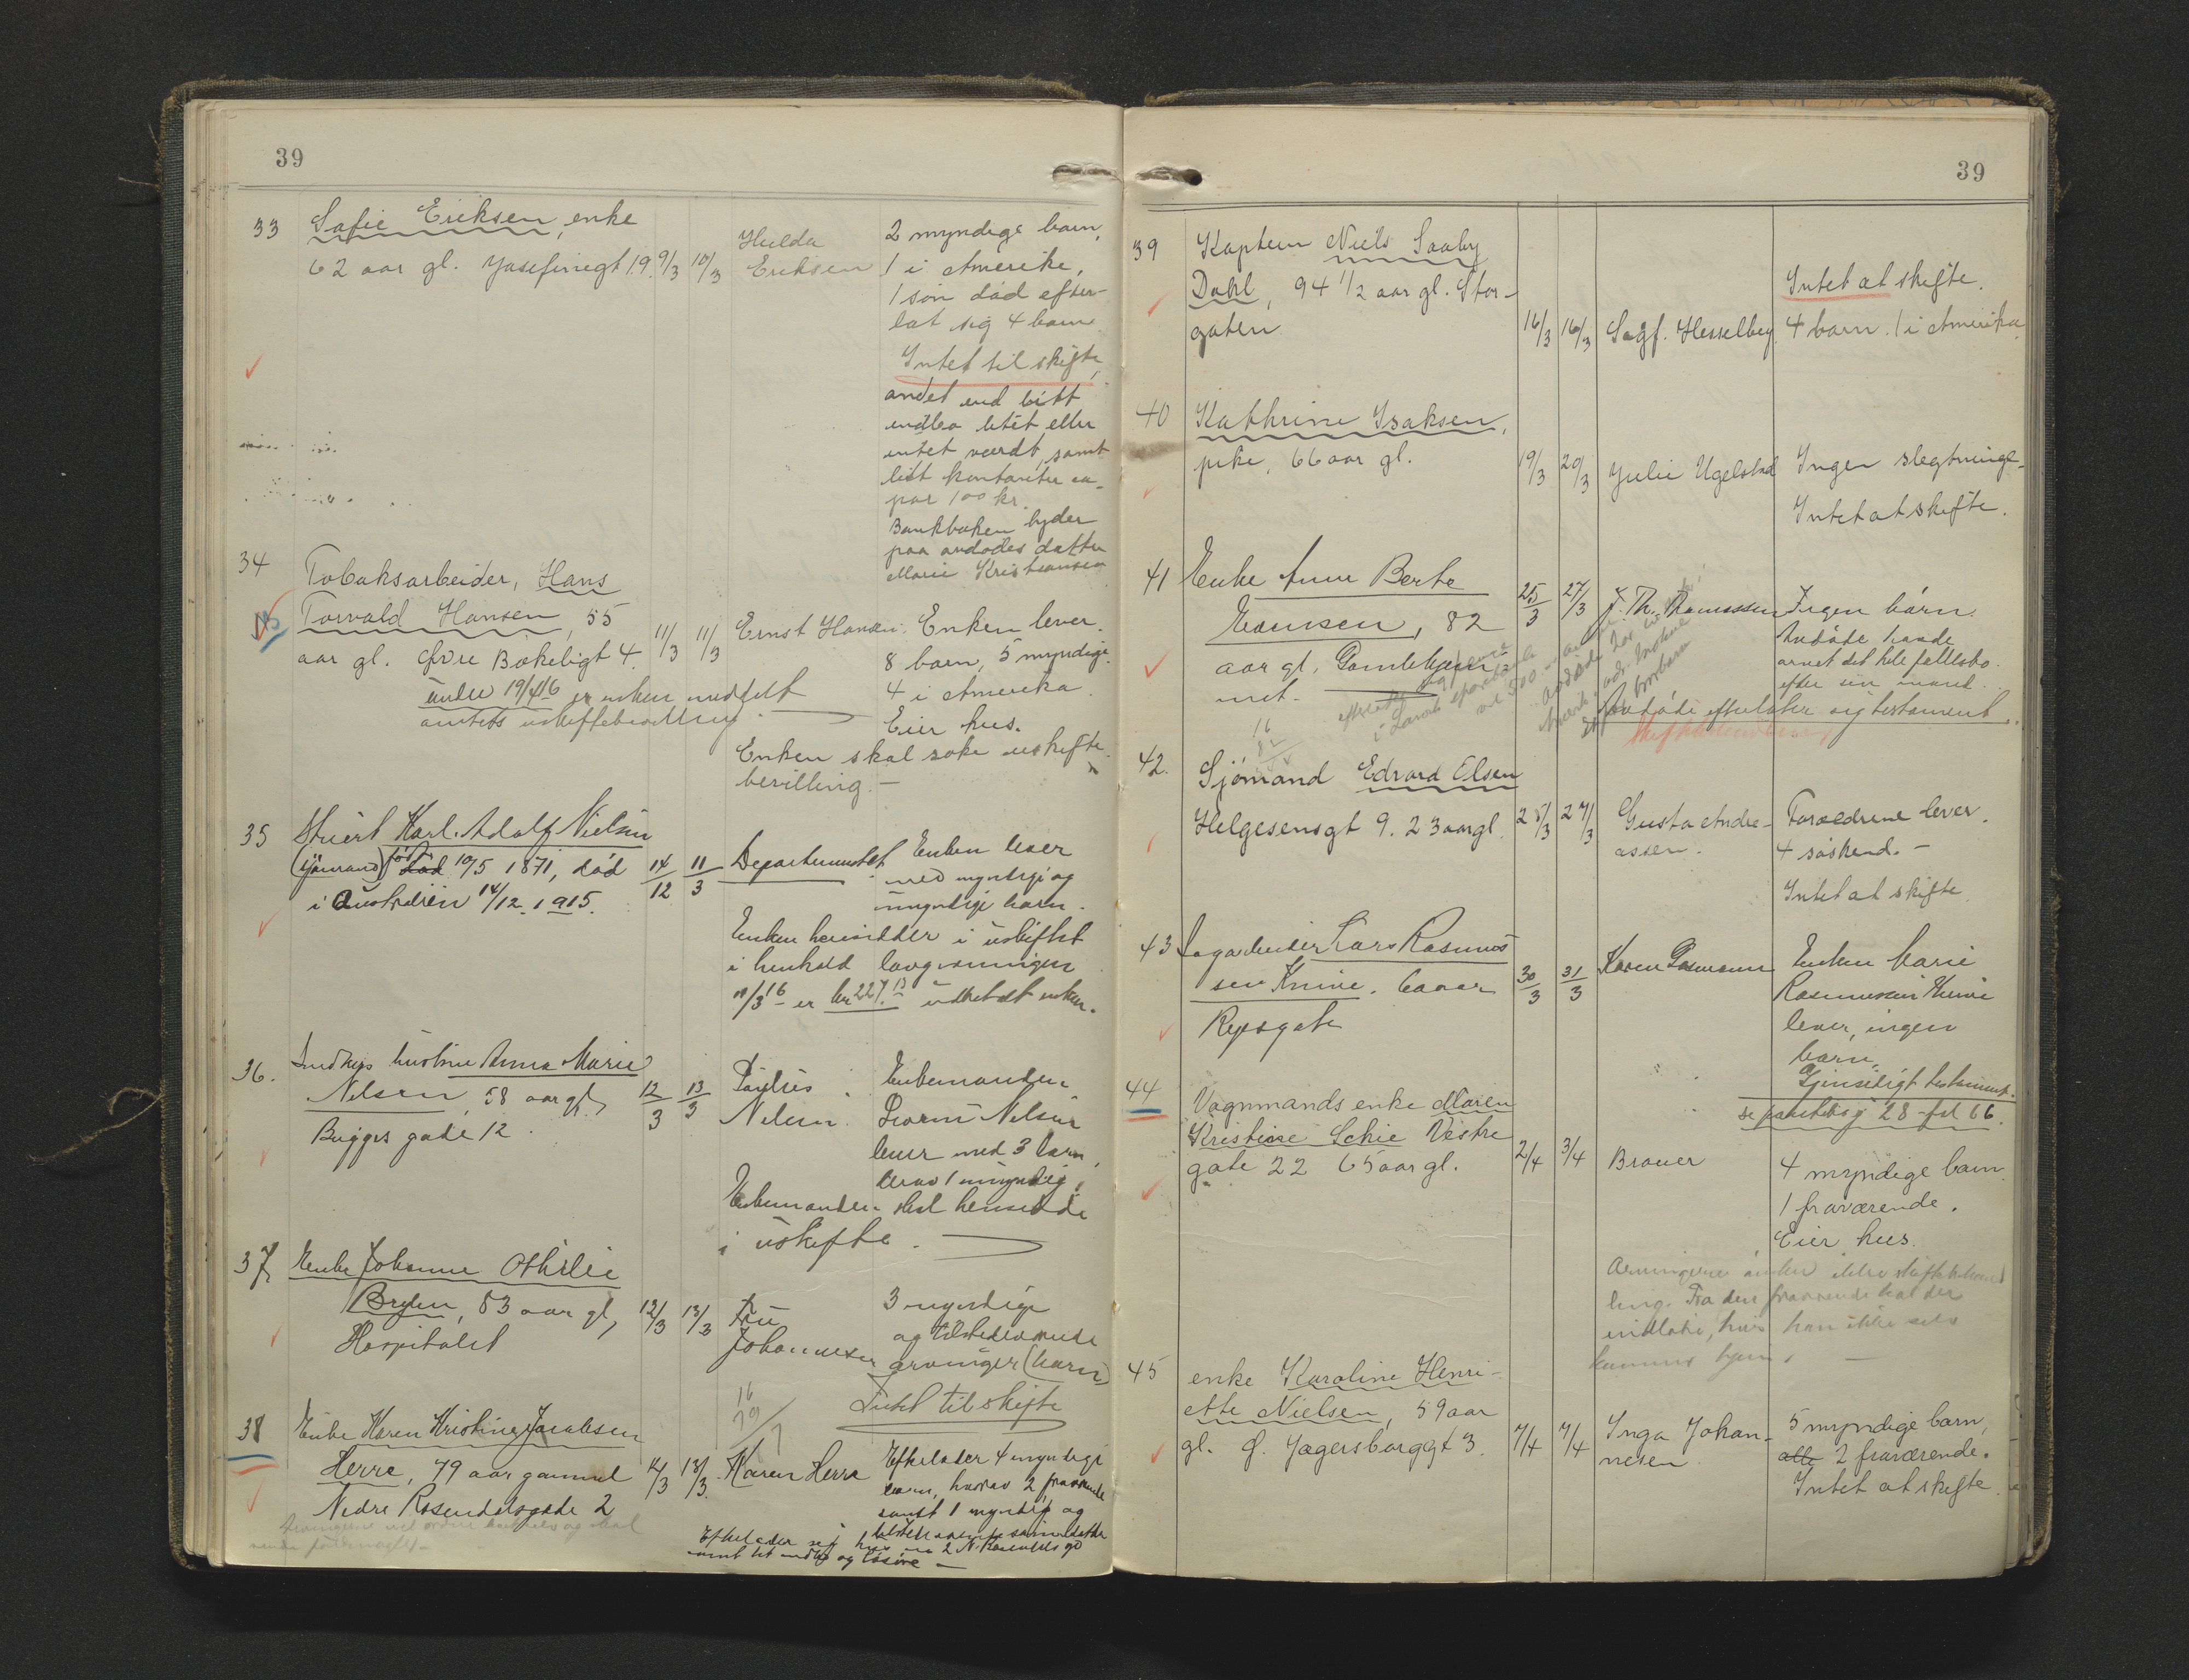 39
33 Sofie Eriksen, enke
62 aar gl. Josefinegt 19. 9/3 10/3 Hulda Eriksen
2 myndige barn,
1 i Amerika,
1 søn død efter-
lat sig 4 barn
Intet til skifte,
andet end litt
indbo litet eller
intet værdt, samt
litt kontanter ca.
par 100 kr.
Bankboken lyder
paa avdødes datter
Marie Kristiansen
34 Tobaksarbeider, Hans
Torvald Hansen, 55
aar gl. Øvre Bøkeligt 4. 11/3 11/3 Ernst Hansen. Enken lever.
8 barn, 5 myndige.
4 i Amerika.
Eier hus.
under 19/4 16 er enken meddelt
amtets uskiftebevilling.
Enken skal søke uskifte-
bevilling. -
35 Stuert Karl Adolf Nielsen
(sjømand) født 10/5 1871, død 14/12 11/3 Departementet. Enken lever
i Australien 14/12 1915.
med myndige og
umyndige barn.
Enken hensidder i uskiftet
i henhold lovgivningen
er kr 227.13 utbetalt enken.
36. hustru Anna Marie
Nilsen, 58 aar gl, 12/3 13/3 Nilsen.
Bugges gade 12.
Enkemanden
Nilsen
lever med 3 barn,
derav 1 umyndig.
Enkemanden skal hensidde
i uskifte.
37 Enke Johanne Othilie
Bryn, 83 aar gl, 12/3 13/3 Fru Johannesen
Hospitalet
3 myndige
og tilstedeværende
arvinger (barn)
Intet til skifte
38 Enke Karen Kristine Jacobsen
Herre, 79 aar gammel 12/3 13/3. Karen Herre
Nedre Rosendalsgade 2
Efterlader 4 myndige
barn, hvorav 2 fraværende
samt 1 myndig og
tilstedeværende sønnedatter
Efterlader sig hus no 2 N. Rosendals gd
samt litt indbo og løsøre -
39
39 Kaptein Niels Saaby
Dahl, 94 1/2 aar gl. Stor-
gaten 16/3 16/3 Sagf. Hesselberg
Intet at skifte.
4 barn. 1 i Amerika.
40 Kathrine Isaksen,
pike, 66 aar gl. 19/3 20/3 Julie Ugelstad
Ingen slegtninge.
Intet at skifte.
41 Enke Anne Berte
Evensen, 82 25/3 27/3 J. Th. Ingen barn.
aar gl. Gamlehjem-
met.
Avdøde havde
arvet det hele fellesbo
efter sin mand.
Avdøde efterlater sig testament.
42. Sjømand Edvard Olsen
Helgesensgt 9. 23 aar gl. 25/3 27/3 Gusta Andre-
assen.
Forældrene lever.
4 søskend. -
Intet at skifte.
43 Lars Rasmus-
sen Knive. 60 aar 30/3 31/3 Karen
Repsgate
Enken Marie
Rasmussen Knive
lever, ingen
barn.
Gjensidigt testament.
se pantebog 28 - fol 66.
44 Vognmands enke Maren
Kristine Schie Vestre
gate 22 65 aar gl. 2/4 3/4 Brauer
4 myndige barn.
1 fraværende.
Eier hus.
Arvingerne ønsker ikke skiftebehand
ling. Fra den fraværende skal der
indløpe, hvis han ikke selv
kommer hjem. -
45 enke Karoline Henri-
ette Nielsen, 59 aar
gl. Ø. Jagersborggt 3. 7/4 7/4 Inga Johan-
nesen.
5 myndige barn,
alle 2 fraværende.
Intet at skifte.